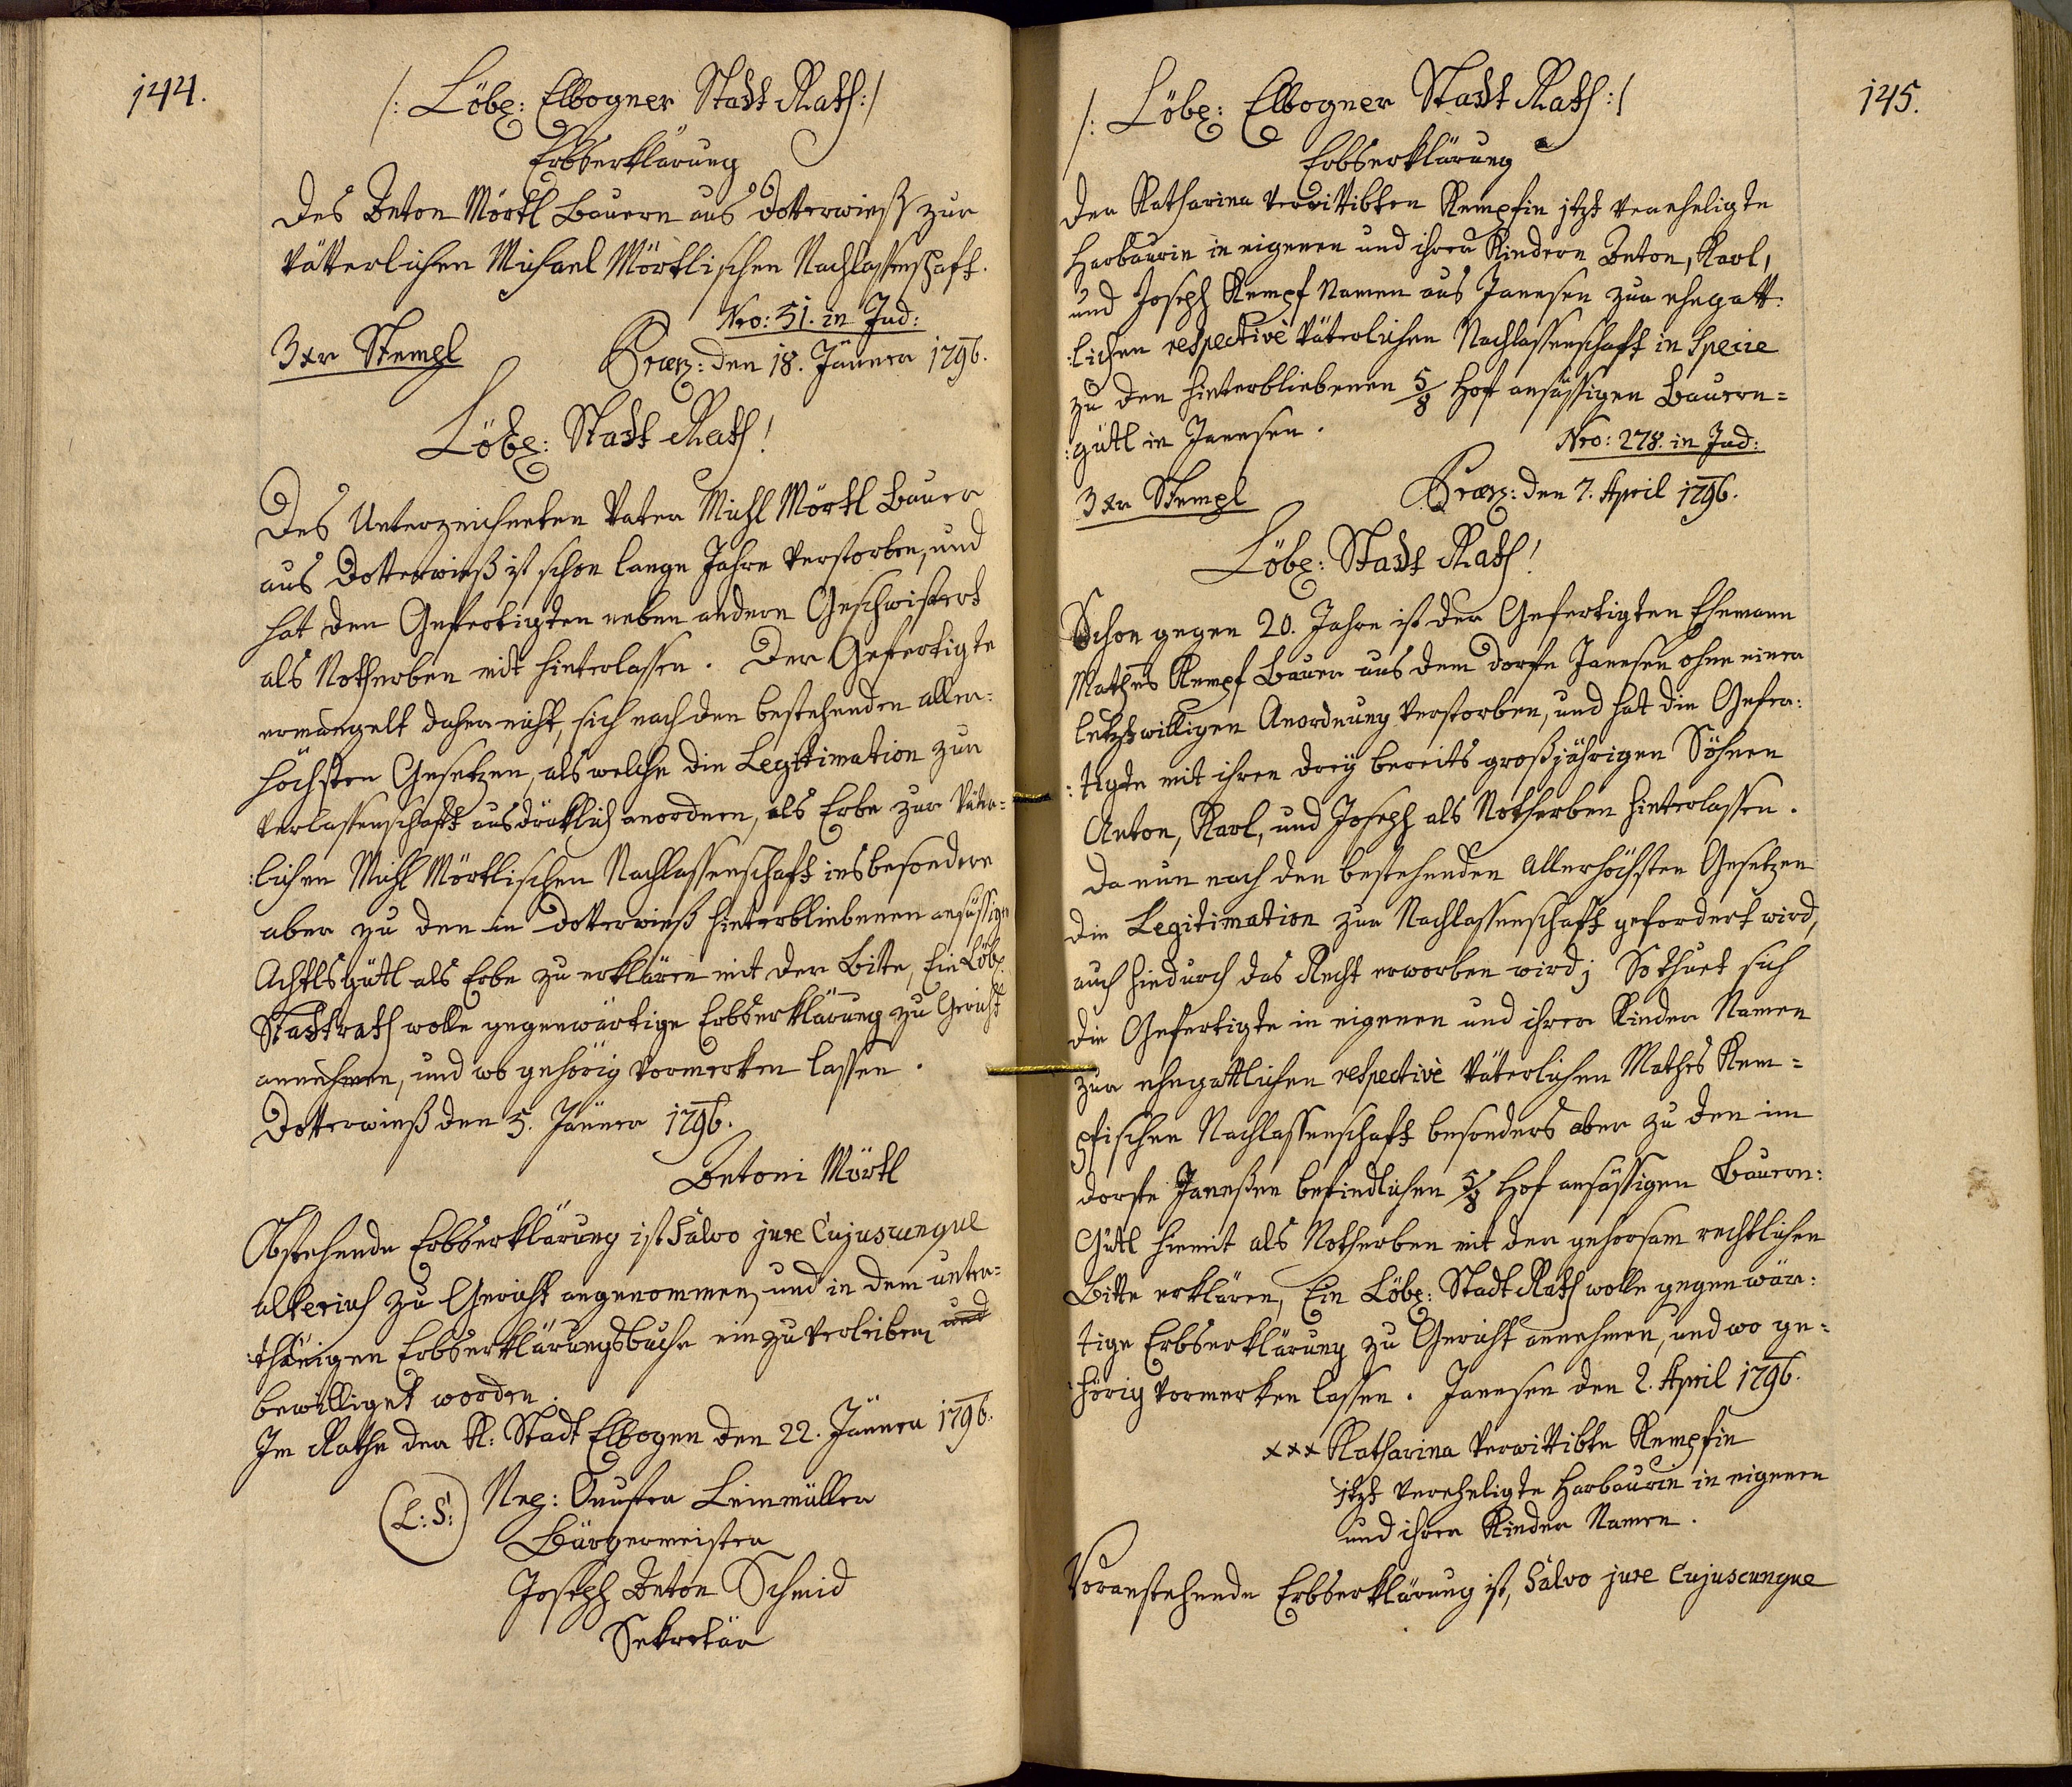 144.
/: Löbl: Elbogner Stadt Rath :/
Erbserklärung
Des Anton Mörtl Bauern aus Dotterwieß zur
vätterlichen Michael Mörtlischen Nachlassenschaft.
Nro: 51. in Jud:
3 xr Stempl Præs: den 18. Jänner 1796.
Löbl: Stadt Rath!
Des Unterzeichneten Vater Michl Mörtl Bauer
aus Dotterwieß ist schon lange Jahre verstorben, und
hat den Gefertigten neben andern Geschwistert
als Notherben mit hinterlassen. Der Gefertigte
ermangelt daher nicht, sich nach den bestehenden aller-
höchsten Gesetzen, als welche die Legitimation zur
Verlassenschaft ausdrüklich anordnen, als Erbe zur väter-
:lichen Michl Mörtlischen Nachlassenschaft insbesondere
aber zu den in Dotterwieß hinterbliebenen ansässigen
Achtlsgütl als Erbe zu erklären mit der Bitte, Ein Löbl.
Stadtrath wolle gegenwärtige Erbserklärung zu Gericht
annehmen, und wo gehörig vormerken lassen.
Dotterwieß den 5. Jänner 1796.
Antoni Mörtl
Obstehende Erbserklärung ist Salvo jure Cujuscunque
alterius zu Gericht angenommen, und in dem unter-
:thänigen Erbserklärungsbuche einzuverleiben und
bewilliget worden.
Im Rathe der K: Stadt Elbogen den 22. Jänner 1796.
(L:S:) Nep: Leinmüller
Bürgermeister
Joseph Anton Schmid
Sekretär
145.
/: Löbl: Elbogner Stadt Rath :/
Erbserklärung
Der Katharina verwittibten Kempfin jtzt vereheligte
Harbaurin in eigenen und ihrer Kindern Anton, Karl,
und Joseph Kempf Namen aus Janesen zur ehegatt:
:lichen respective väterlichen Nachlassenschaft in Specie
zu den hinterbliebenen 5/8 Hof ansässigen Bauern=
:gütl in Janesen.
Nro: 278. in Jud:
3 xr Stempl Præs: den 7. April 1796.
Löbl: Stadt Rath!
Schon gegen 20. Jahre ist der Gefertigten Ehemann
Mathes Kempf Bauer aus dem Dorfe Janesen ohne einer
letztwilligen Anordnung verstorben, und hat die Gefer:
:tigte mit ihren drey bereits großjährigen Söhnen
Anton, Karl, und Joseph als Notherben hinterlassen.
Da nun nach den bestehenden Allerhöchsten Gesetzen
die Legitimation zur Nachlassenschaft gefordert wird,
auch hiedurch das Recht erworben wird; So thuet sich
die Gefertigte in eigenen und ihrer Kinder Namen
zur ehegattlichen respective väterlichen Mathes Kem=
pfischen Nachlassenschaft besonders aber zu den im
Dorfe Janeßen befindlichen 5/8 Hof ansässigen Bauern:
Gütl hiemit als Notherben mit der gehorsam rechtlichen
Bitte erklären, Ein Löbl: Stadt Rath wolle gegenwär:
tige Erbserklärung zu Gericht annehmen, und wo ge=
hörig vormerken lassen. Janesen den 2. April 1796.
xxx Katharina verwittibte Kempfin
jtzt verehligte Harbaurin in eigenen
und ihrer Kinder Namen.
Voranstehende Erbserklärung ist, Salvo jure Cujuscunque